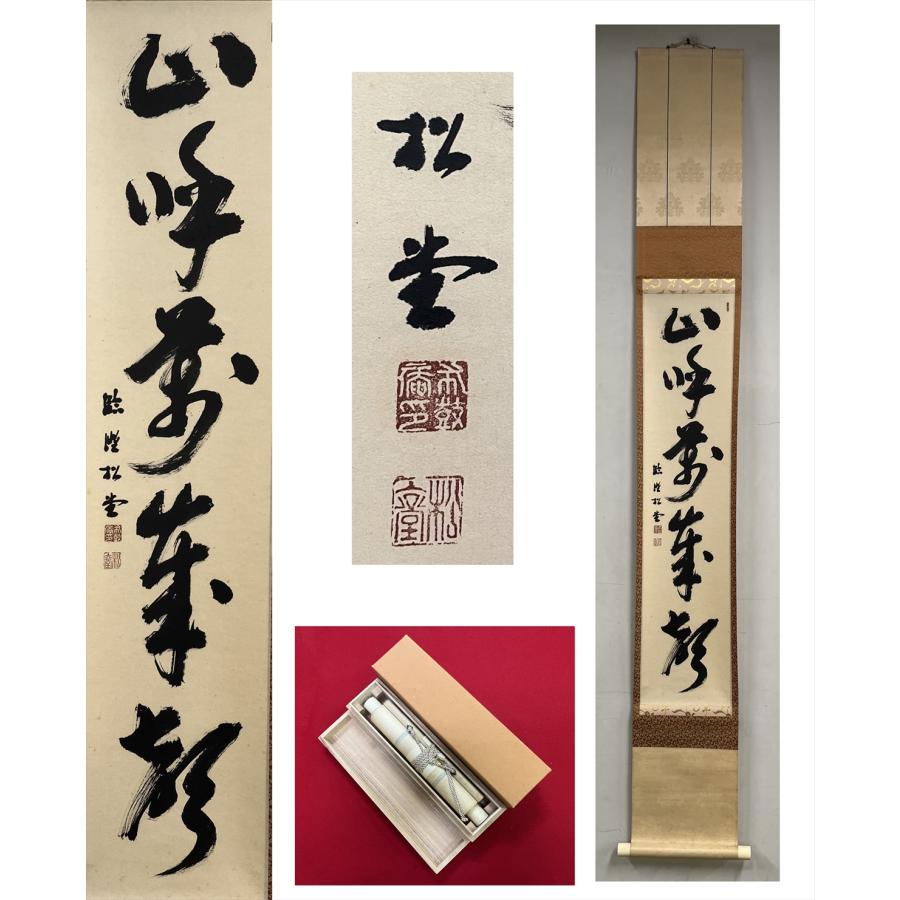 山呼萬歳聲
臨済松堂
松堂
松堂
山呼萬歳聲
臨済松堂